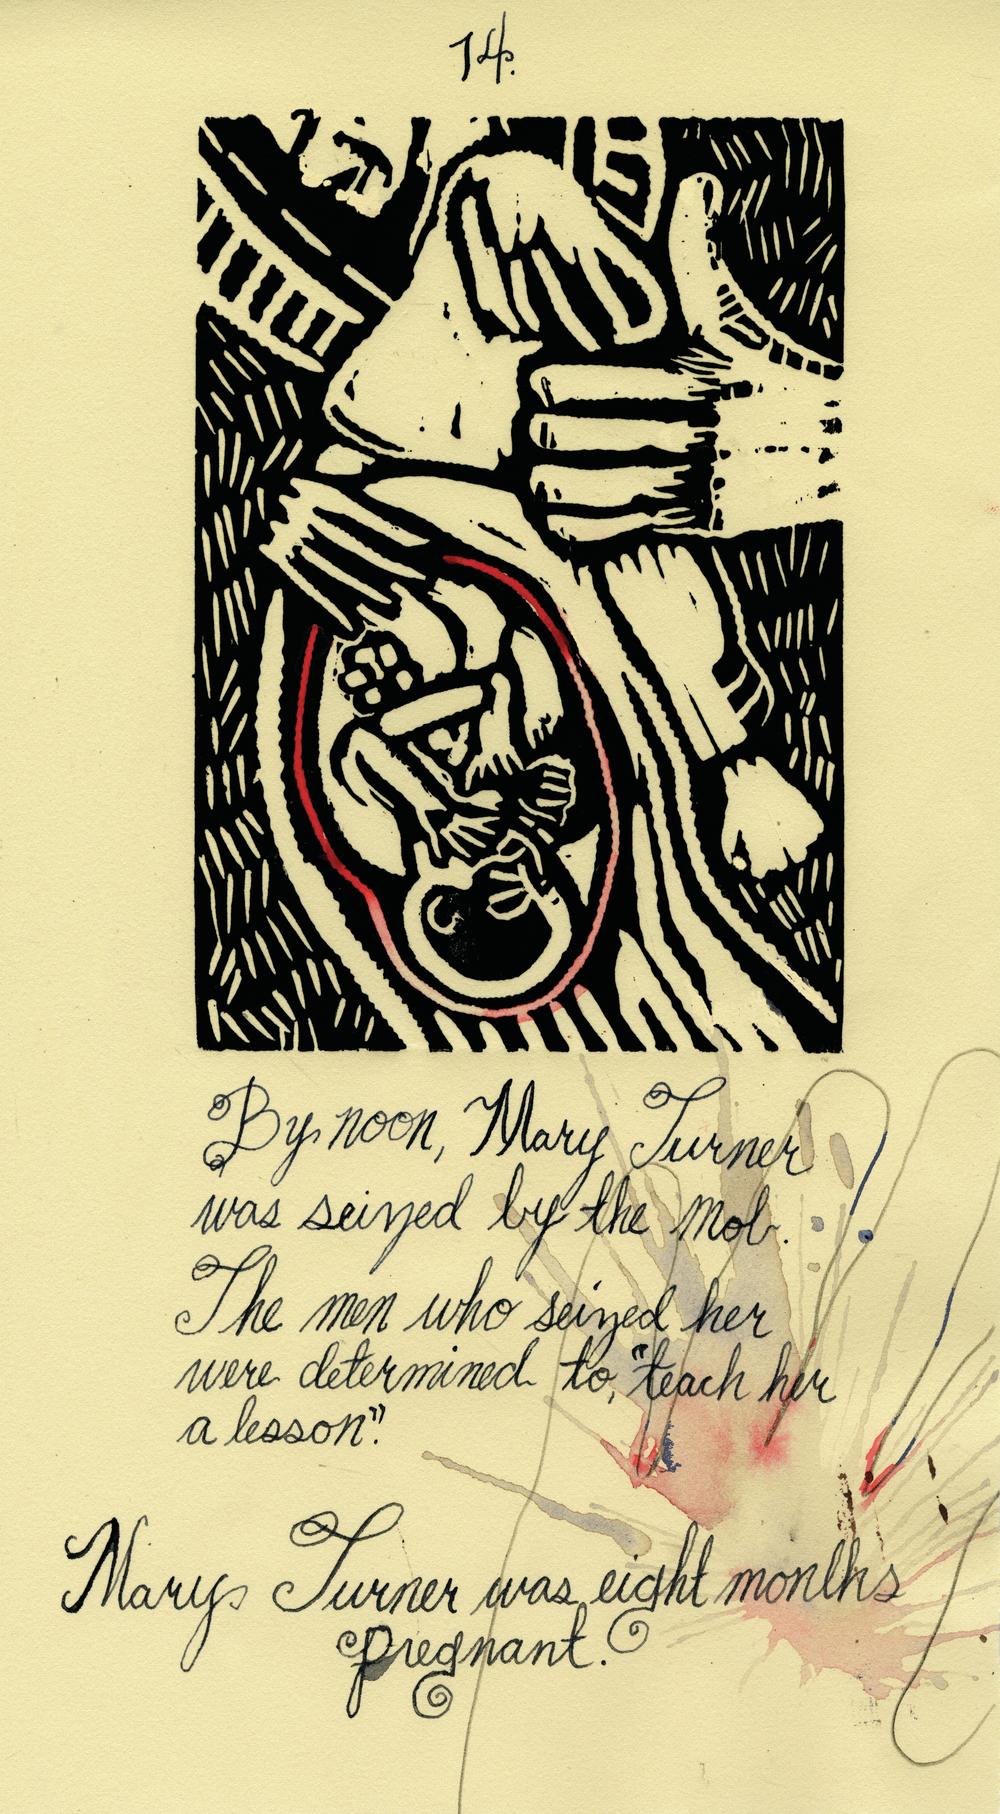 14.
By noon, Mary Turner
was seized by the mob.
The men who seized her
were determined to, "teach her
a lesson".
Mary Turner was eight months
pregnant.